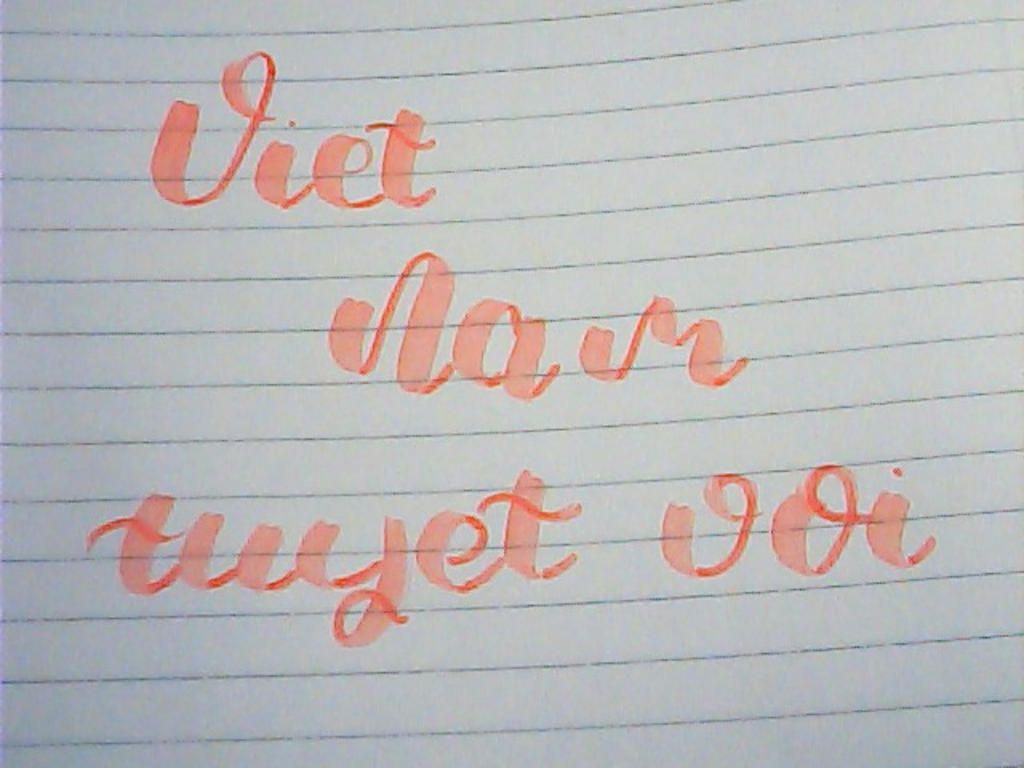 Viet
Nam
tuyet voi